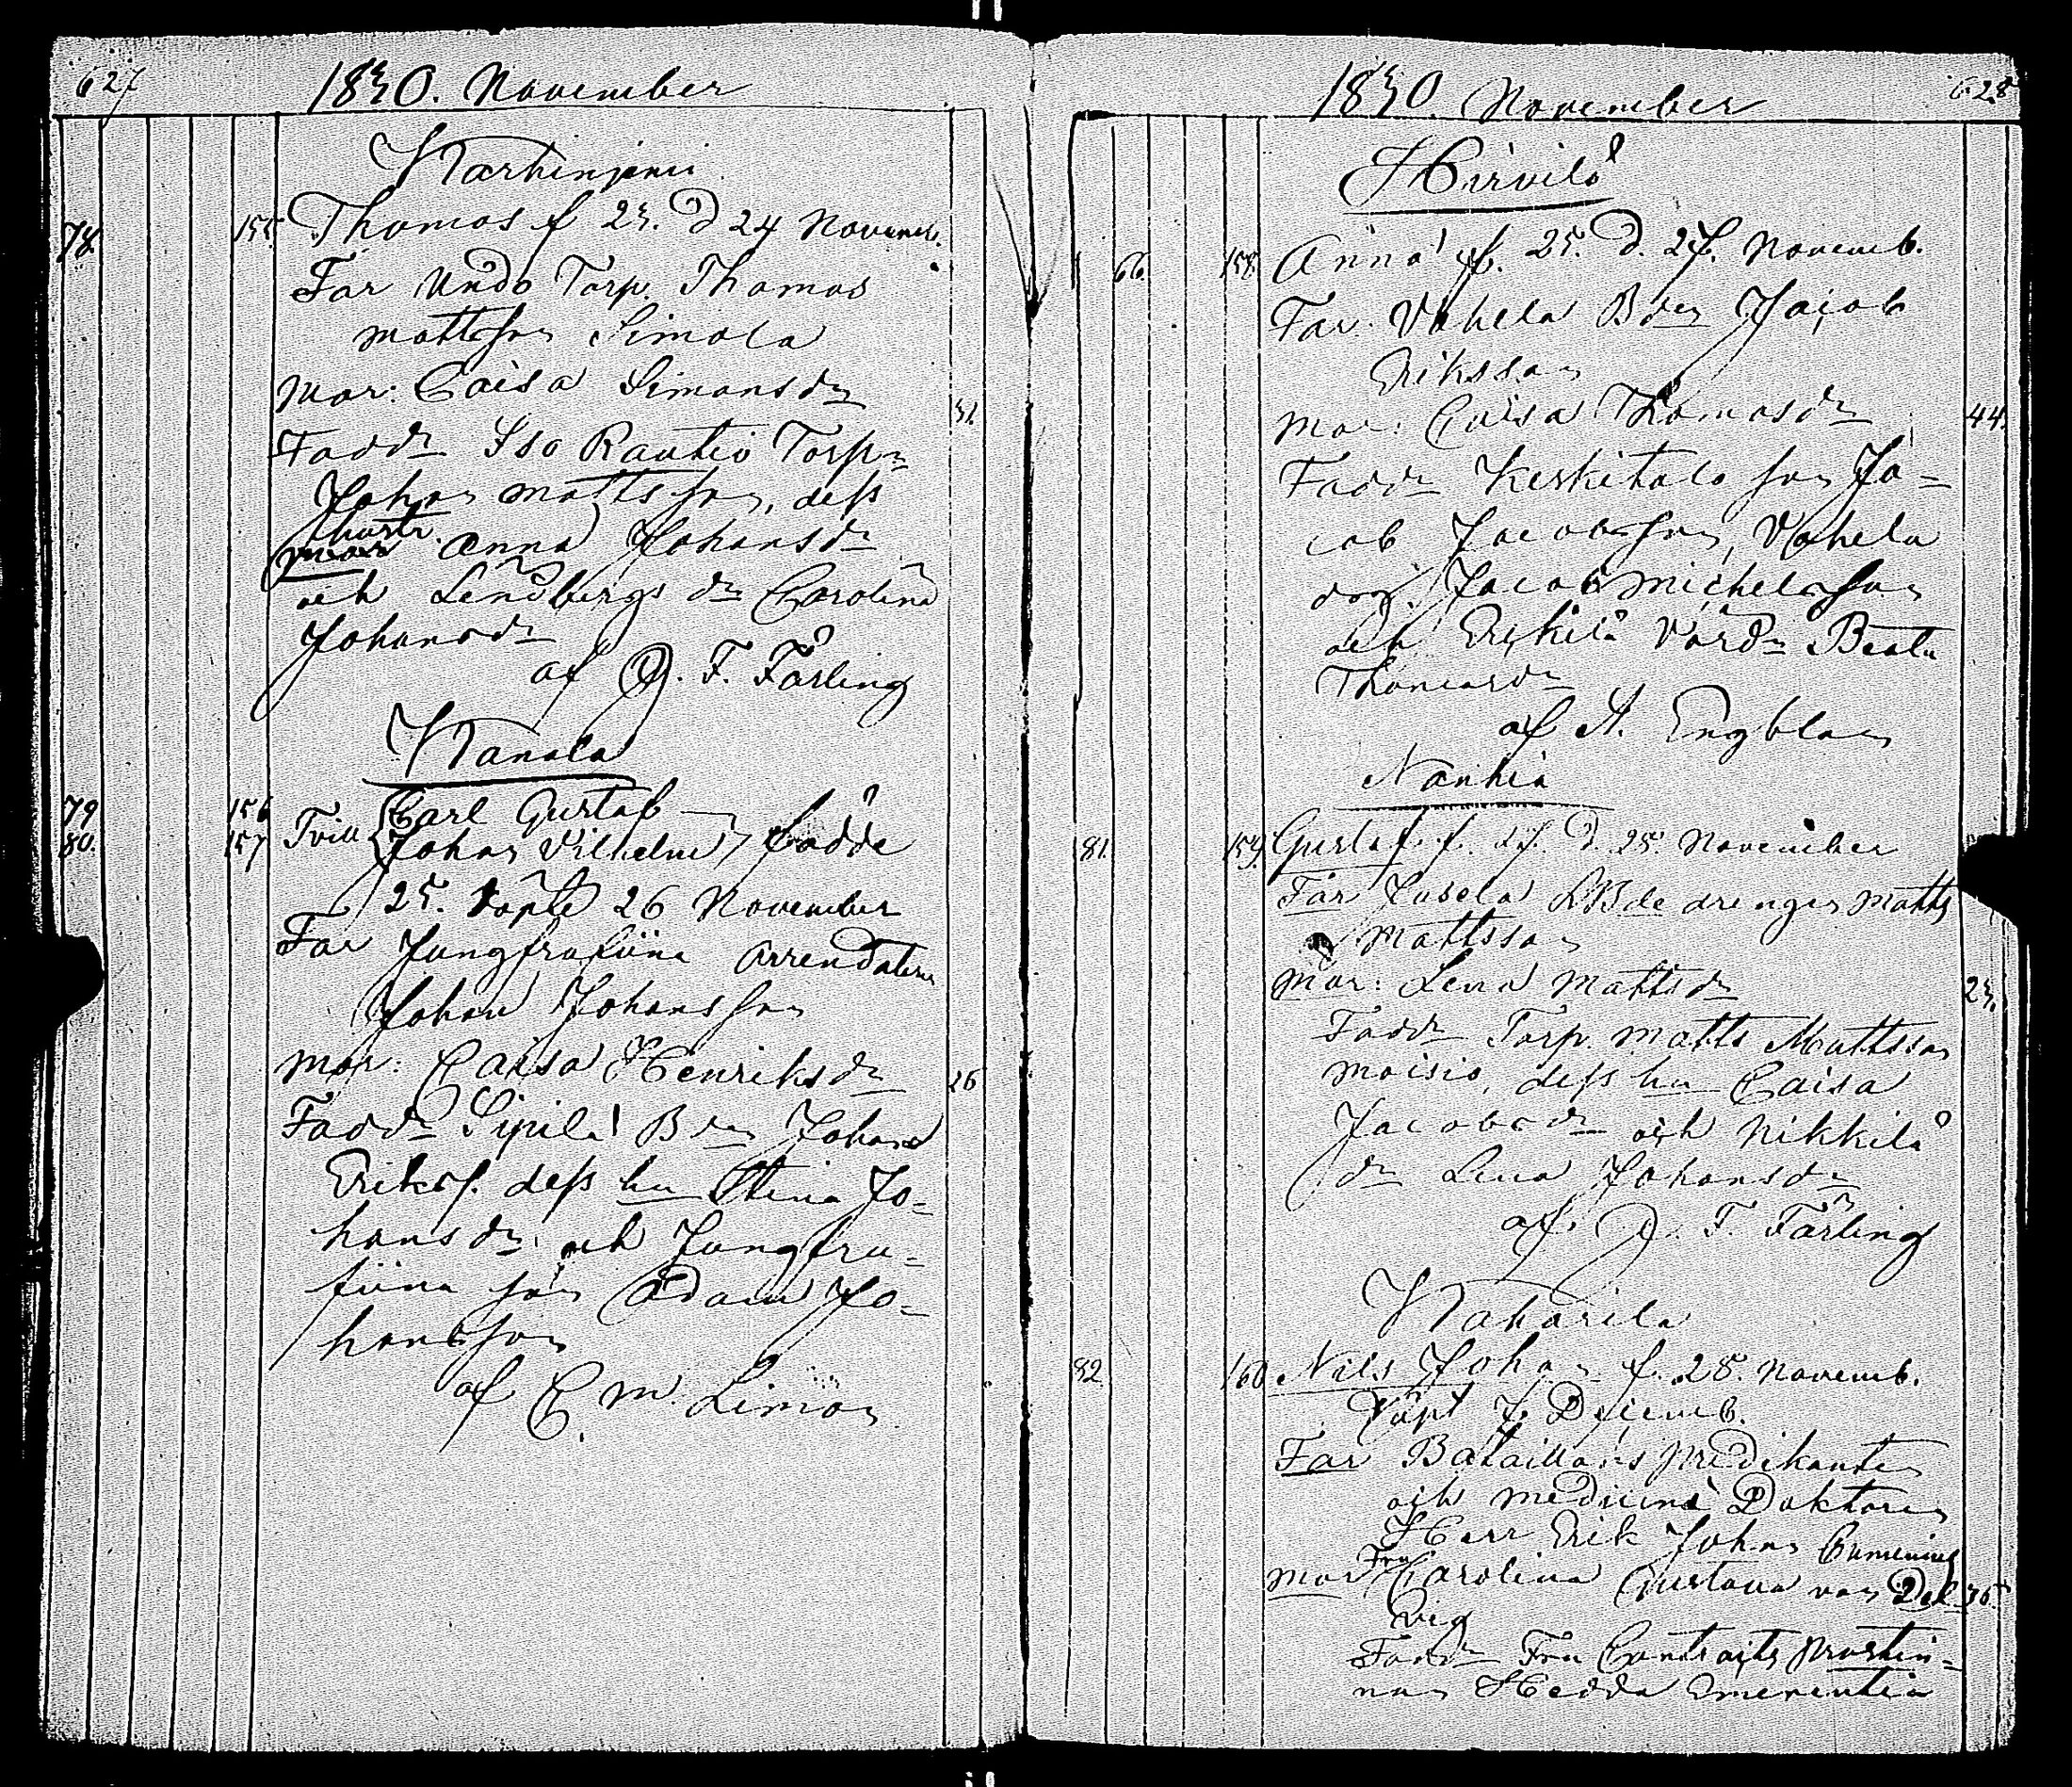 627
1830. November
Karhinjemi
78. 155. Thomas f 23. D 24 Novemb.
Far Undo Torp. Thomas
Mattsson Simola
Mor: Caisa Simonsdr 31.
Faddr Iso Rautio Torpr
Johan Mattsson, dess
hustr. Anna Johansdr
och Lindbergs dr Carolina
Johansdr
af G. F. Färling
Kanala
79 156 Carl Gustaf
80. 157 Tvill Johan Vilhelm födde
25. döpte 26 November
Far Jungfrufiina Arrendatorn
Johan Johansson
Mor: Caisa Henriksdr 26
Faddr Sipilä Bdn Johan
Eriks. dess hu Stina Jo-
hansdr och Jungfru-
fiina son Adam Jo-
hansson
af C. M. Limon
1830. November
628
Hirvilä
66. 158. Anna f. 25. d. 27. Novemb.
Far. Vahela Bden Jacob
Eriksson
Mor: Caisa Thomasdr 44.
Faddr Keskitalo son Ja-
cob Jacobsson, Vahela
drg. Jacob Michelsson
och Erkilä Värdn Beata
Thomasdr
af A. Engblom
Nankia
81. 159. Gustaf f. 27. D. 28. November
Far Jusela RBde drengen Matts
Mattsson
Mor: Lena Mattsdr 23.
Faddr Torp. Matts Mattsson
Moisio, dess hu Caisa
Jacobsdr och Nikkilä
dr Lena Johansdr
af G. F. Färling
Kaharila
82. 160 Nils Johan f. 28. Novemb.
Döpt 7. Decemb.
Far Bataillons predikanten
och medicinä Doktoren
Herr Erik Johan
Mor Fru Carolina Gustava von Del- 36.
vig
Faddr Fru Contracts prostin-
nan Hedda Emerentia